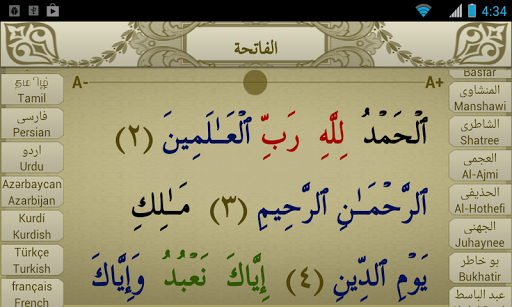 4:34
الفاتحة
A-
A+
தமிழ்
Tamil
فارسی
Persian
اردو
Urdu
Azərbaycan
Azarbijan
Kurdí
Kurdish
Türkçe
Turkish
français
French
ٱلْحَمْدُ لِلَّهِ رَبِّ ٱلْعَـٰلَمِينَ ﴿٢﴾
ٱلرَّحْمَـٰنِ ٱلرَّحِيمِ ﴿٣﴾ مَـٰلِكِ
يَوْمِ ٱلدِّينِ ﴿٤﴾ إِيَّاكَ نَعْبُدُ وَإِيَّاكَ
Basfar
المنشاوى
Manshawi
الشاطرى
Shatree
العجمى
Al-Ajmi
الحذيفى
Al-Hothefi
الجهنى
Juhaynee
بو خاطر
Bukhatir
عبد الباسط